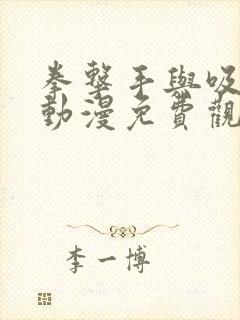 拳擊手與吸
動漫免費觀
李一博